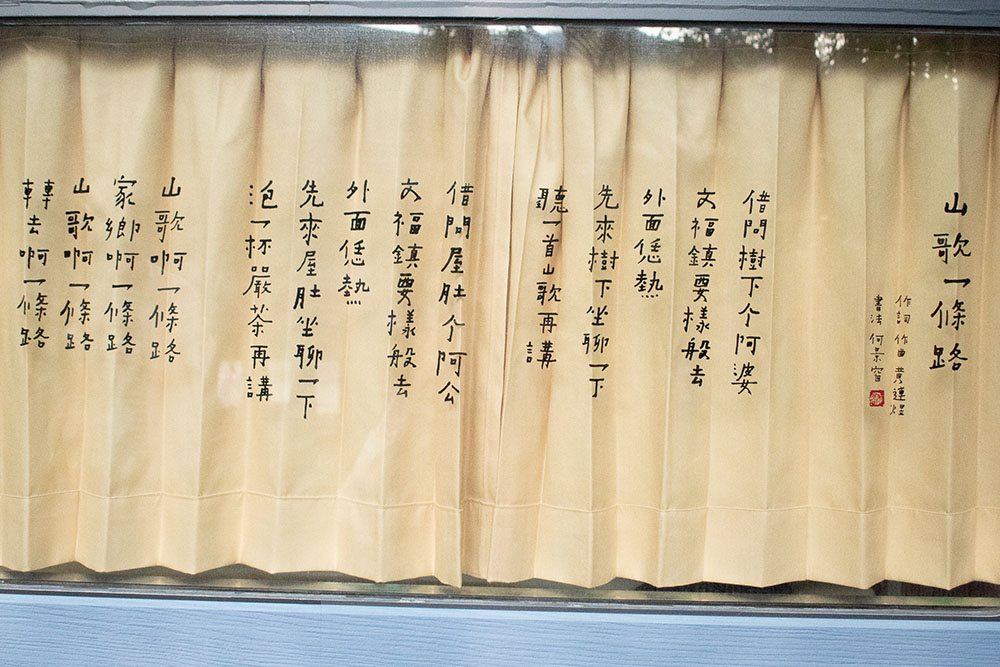 山歌一條路
作詞 作曲 黃連煜
書法 何景窗
借問樹下个阿婆
文福鎮要樣般去
外面恁熱
先來樹下坐聊一下
聽一首山歌再講
借問屋肚个阿公
文福鎮要樣般去
外面恁熱
先來屋肚坐聊一下
泡一杯嚴茶再講
山歌啊一條路
家鄉啊一條路
山歌啊一條路
轉去啊一條路